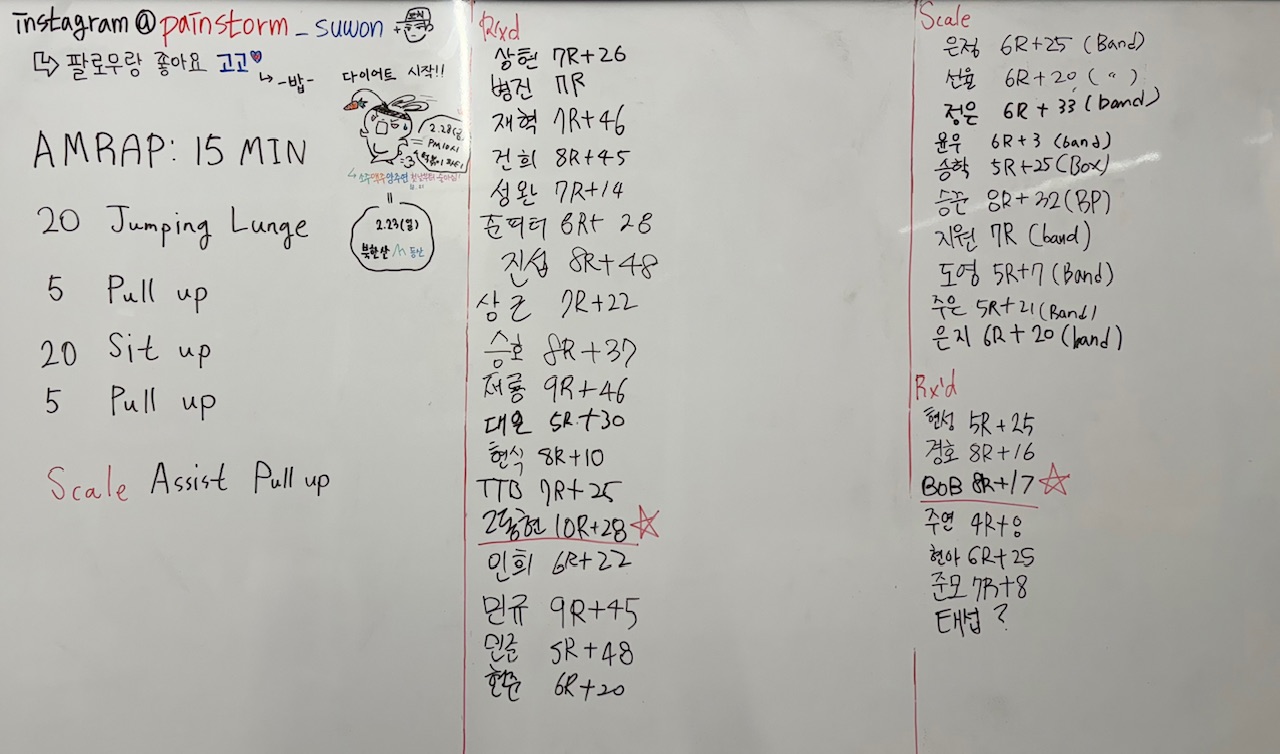 instagram@painstorm_suwon
↳ 팔로우랑 좋아요 고고♥
↳ -밥-
다이어트 시작!!
2.28(금)
PM10시
2.23(일)
북한산 등산
AMRAP: 15 MIN
20 Jumping Lunge
5 Pull up
20 Sit up
5 Pull up
Scale Assist Pull up
Rxd
상현 7R+26
병건 7R
재혁 7R+46
건희 8R+45
성완 7R+14
준피터 8R+28
진섭 8R+48
삼근 7R+22
승호 8R+37
저룡 9R+46
대온 5R+30
현식 8R+10
TTB 7R+25
10R+28☆
인희 6R+22
민규 9R+45
민준 5R+48
현준 6R+20
Scale
은정 6R+25 (Band)
선율 6R+20 ( " )
정은 6R+33 (band)
윤우 6R+3 (band)
승학 5R+25 (Box)
승준 8R+32 (BP)
지원 7R (band)
도영 5R+7 (Band)
주은 5R+21 (Band)
은지 6R+20 (band)
Rx'd
현성 5R+25
경호 8R+16
BOB 8R+17☆
주연 4R+8
현아 6R+25
준모 7R+8
태섭 ?